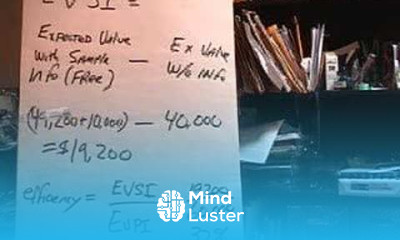 EVSI =
EXPECTED VALUE
WITH SAMPLE — EX VALUE
INFO (FREE) W/O INFO
(49,200+10,000) — 40,000
= $19,200
efficiency = EVSI
EVPI
Mind
Luster